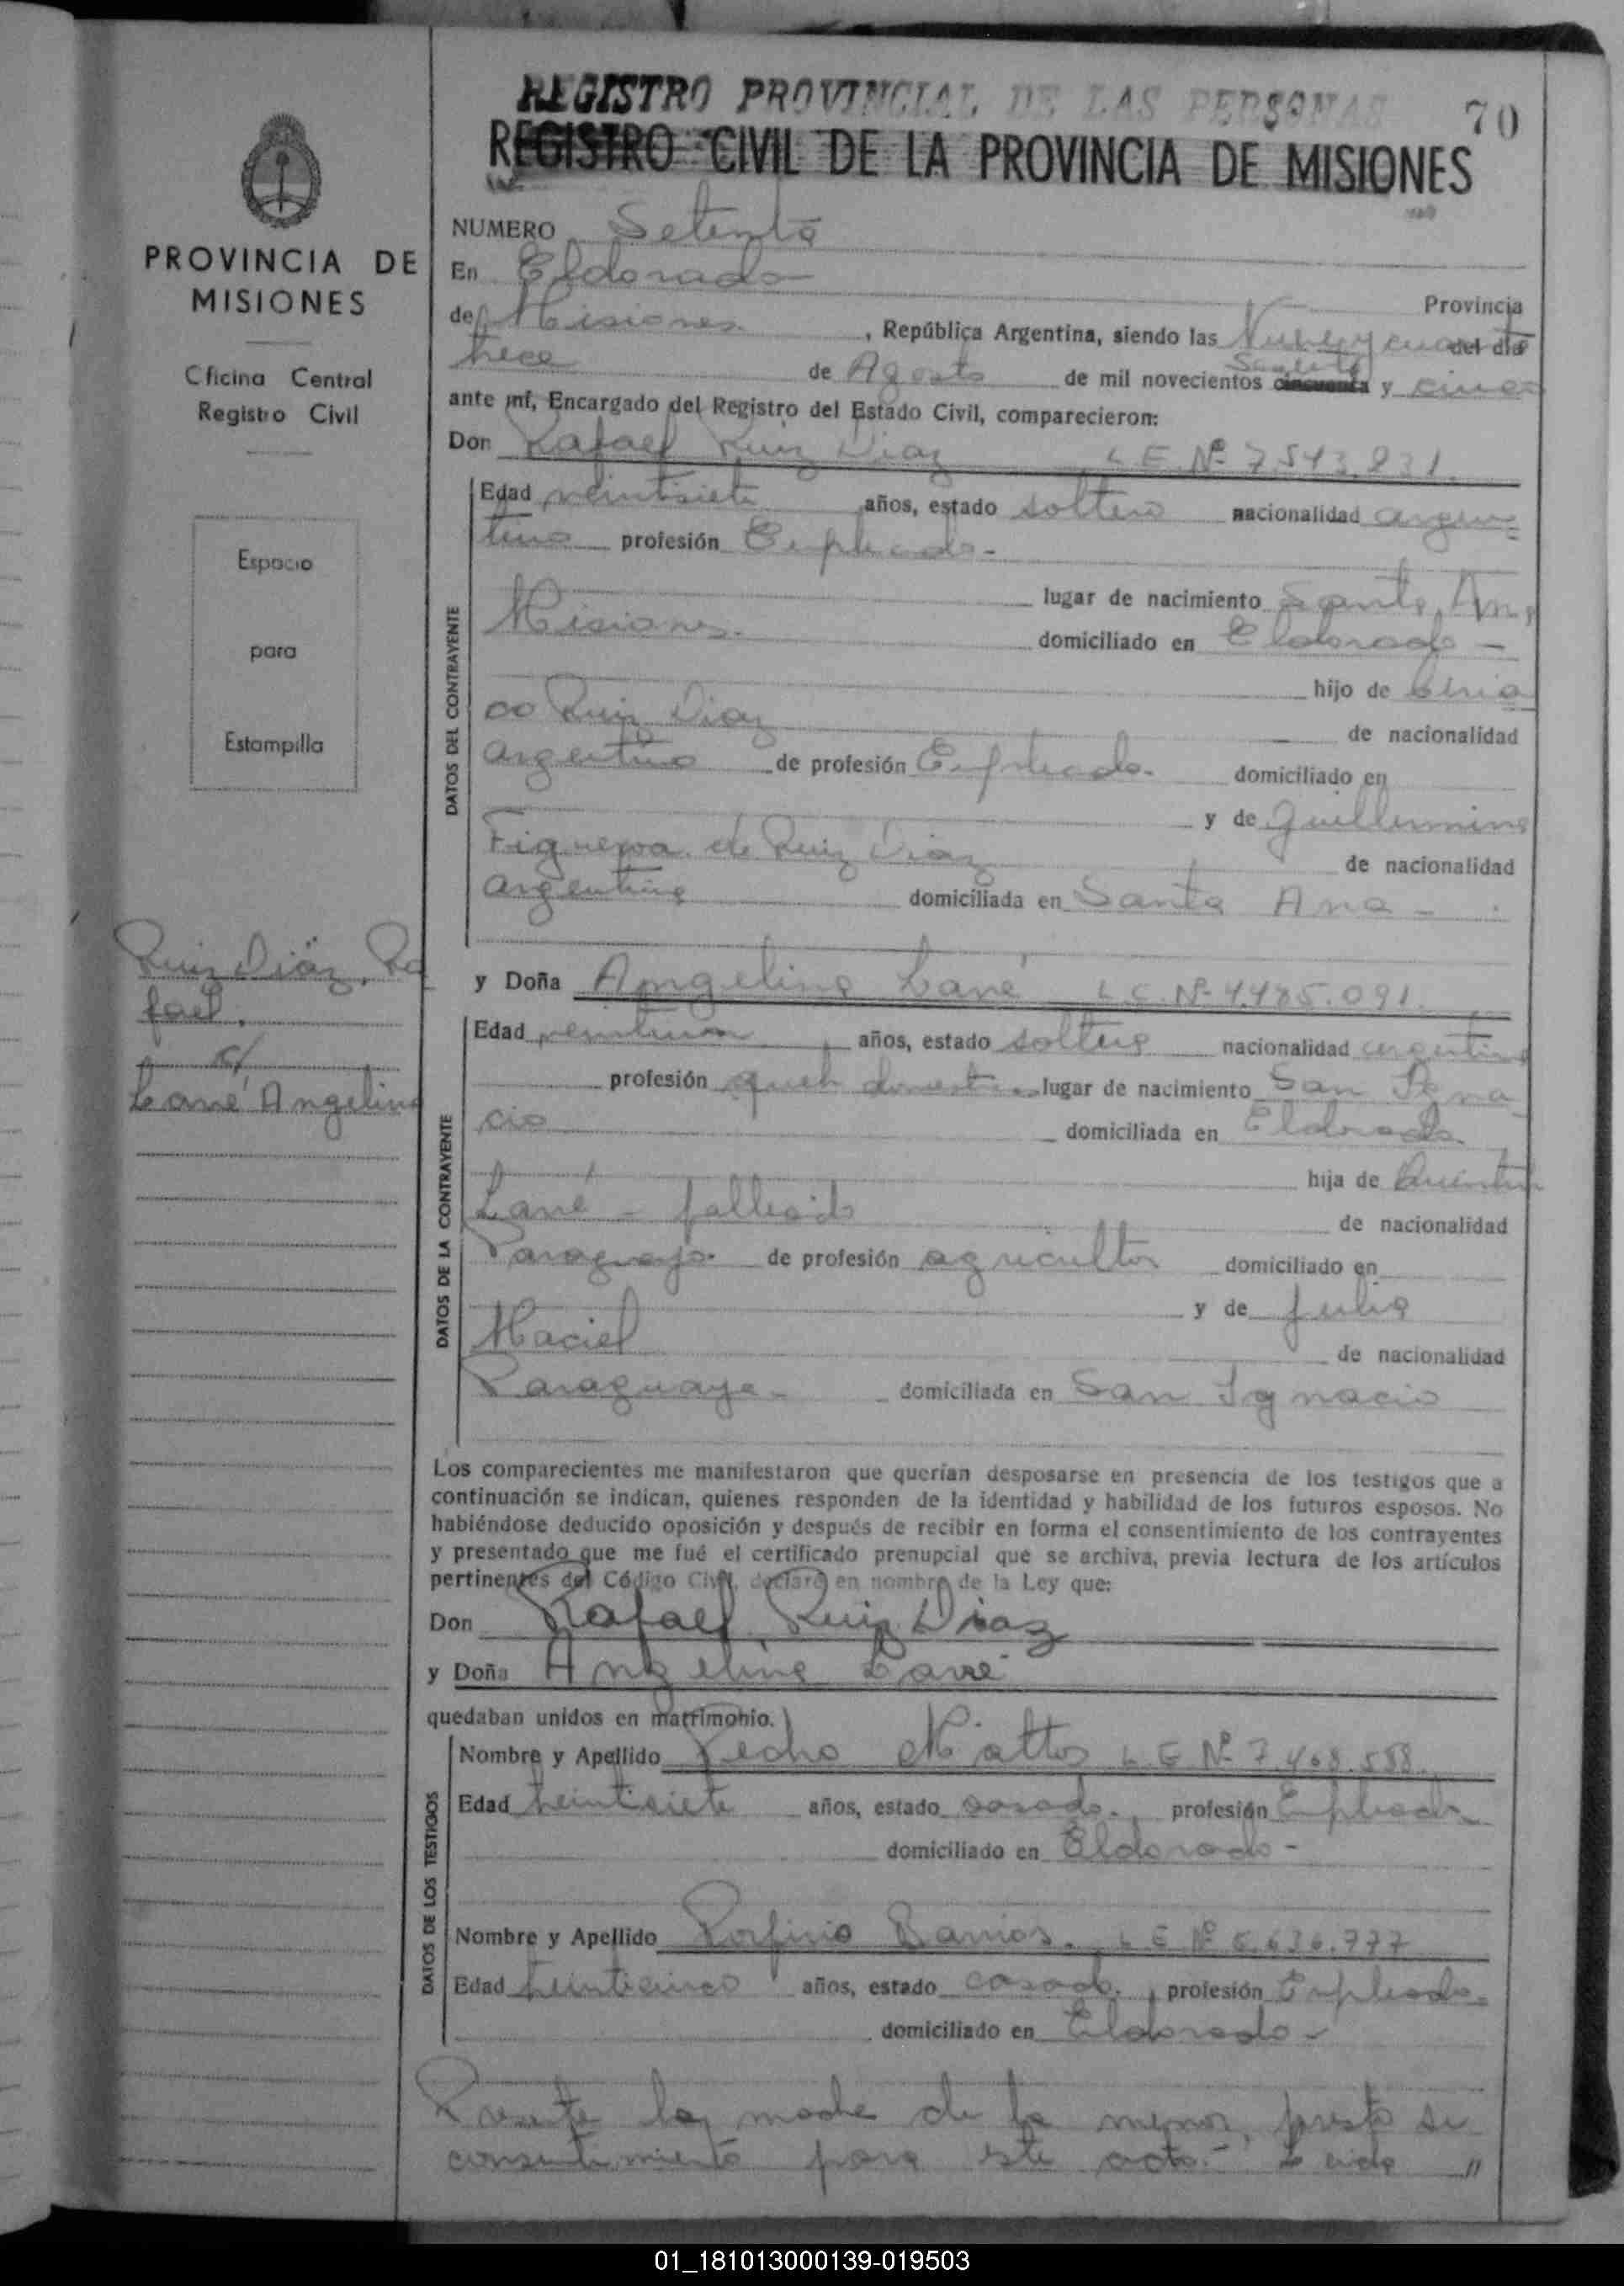 REGISTRO PROVINCIAL DE LAS PERSONAS
70
REGISTRO CIVIL DE LA PROVINCIA DE MISIONES
PROVINCIA DE
MISIONES
Oficina Central
Registro Civil
Espacio
para
Estampilla
Ruiz Diaz, Ra
fael.
c/
Lané Angelina
NUMERO Setenta
En Eldorado
Provincia
de Misiones, República Argentina, siendo las Nueve y cuarto del día
trece de Agosto de mil novecientos cincuenta Sesenta y cinco
ante mí, Encargado del Registro del Estado Civil, comparecieron:
Don Rafael Ruiz Diaz L.E. Nº 7.543.831.
DATOS DEL CONTRAYENTE
Edad veintisiete años, estado soltero nacionalidad argen-
tino profesión Empleado-
lugar de nacimiento Santa Ana
Misiones. domiciliado en Eldorado-
hijo de
Ruiz Diaz
de nacionalidad
argentino de profesión Empleado- domiciliado en
y de Guillermina
Figueroa de Ruiz Diaz
de nacionalidad
argentina domiciliada en Santa Ana-
y Doña Angelina Lané L.C. Nº 4.485.091.
DATOS DE LA CONTRAYENTE
Edad años, estado soltera nacionalidad argentina
profesión queh domesticos lugar de nacimiento San Igna
cio domiciliada en Eldorado
hija de Quintin
Lané - fallecido
de nacionalidad
Paraguayo de profesión agricultor domiciliado en
y de Julia
Maciel
de nacionalidad
Paraguaya- domiciliada en San Ignacio
Los comparecientes me manifestaron que querían desposarse en presencia de los testigos que a
continuación se indican, quienes responden de la identidad y habilidad de los futuros esposos. No
habiéndose deducido oposición y después de recibir en forma el consentimiento de los contrayentes
y presentado que me fué el certificado prenupcial que se archiva, previa lectura de los artículos
pertinentes del Código Civil, declaro en nombre de la Ley que:
Don Rafael Ruiz Diaz
y Doña Angelina Lané
quedaban unidos en matrimonio.
DATOS DE LOS TESTIGOS
Nombre y Apellido Pedro Mattos L.E. Nº 7.468.588.
Edad veintisiete años, estado casado. profesión Empleado
domiciliado en Eldorado-
Nombre y Apellido Porfirio Barrios. L.E. Nº 6.636.777
Edad veinticinco años, estado casado, profesión Empleado-
domiciliado en Eldorado-
Presente la madre de la menor, presta su
consentimiento para este acto.- Leida "
01_181013000139-019503